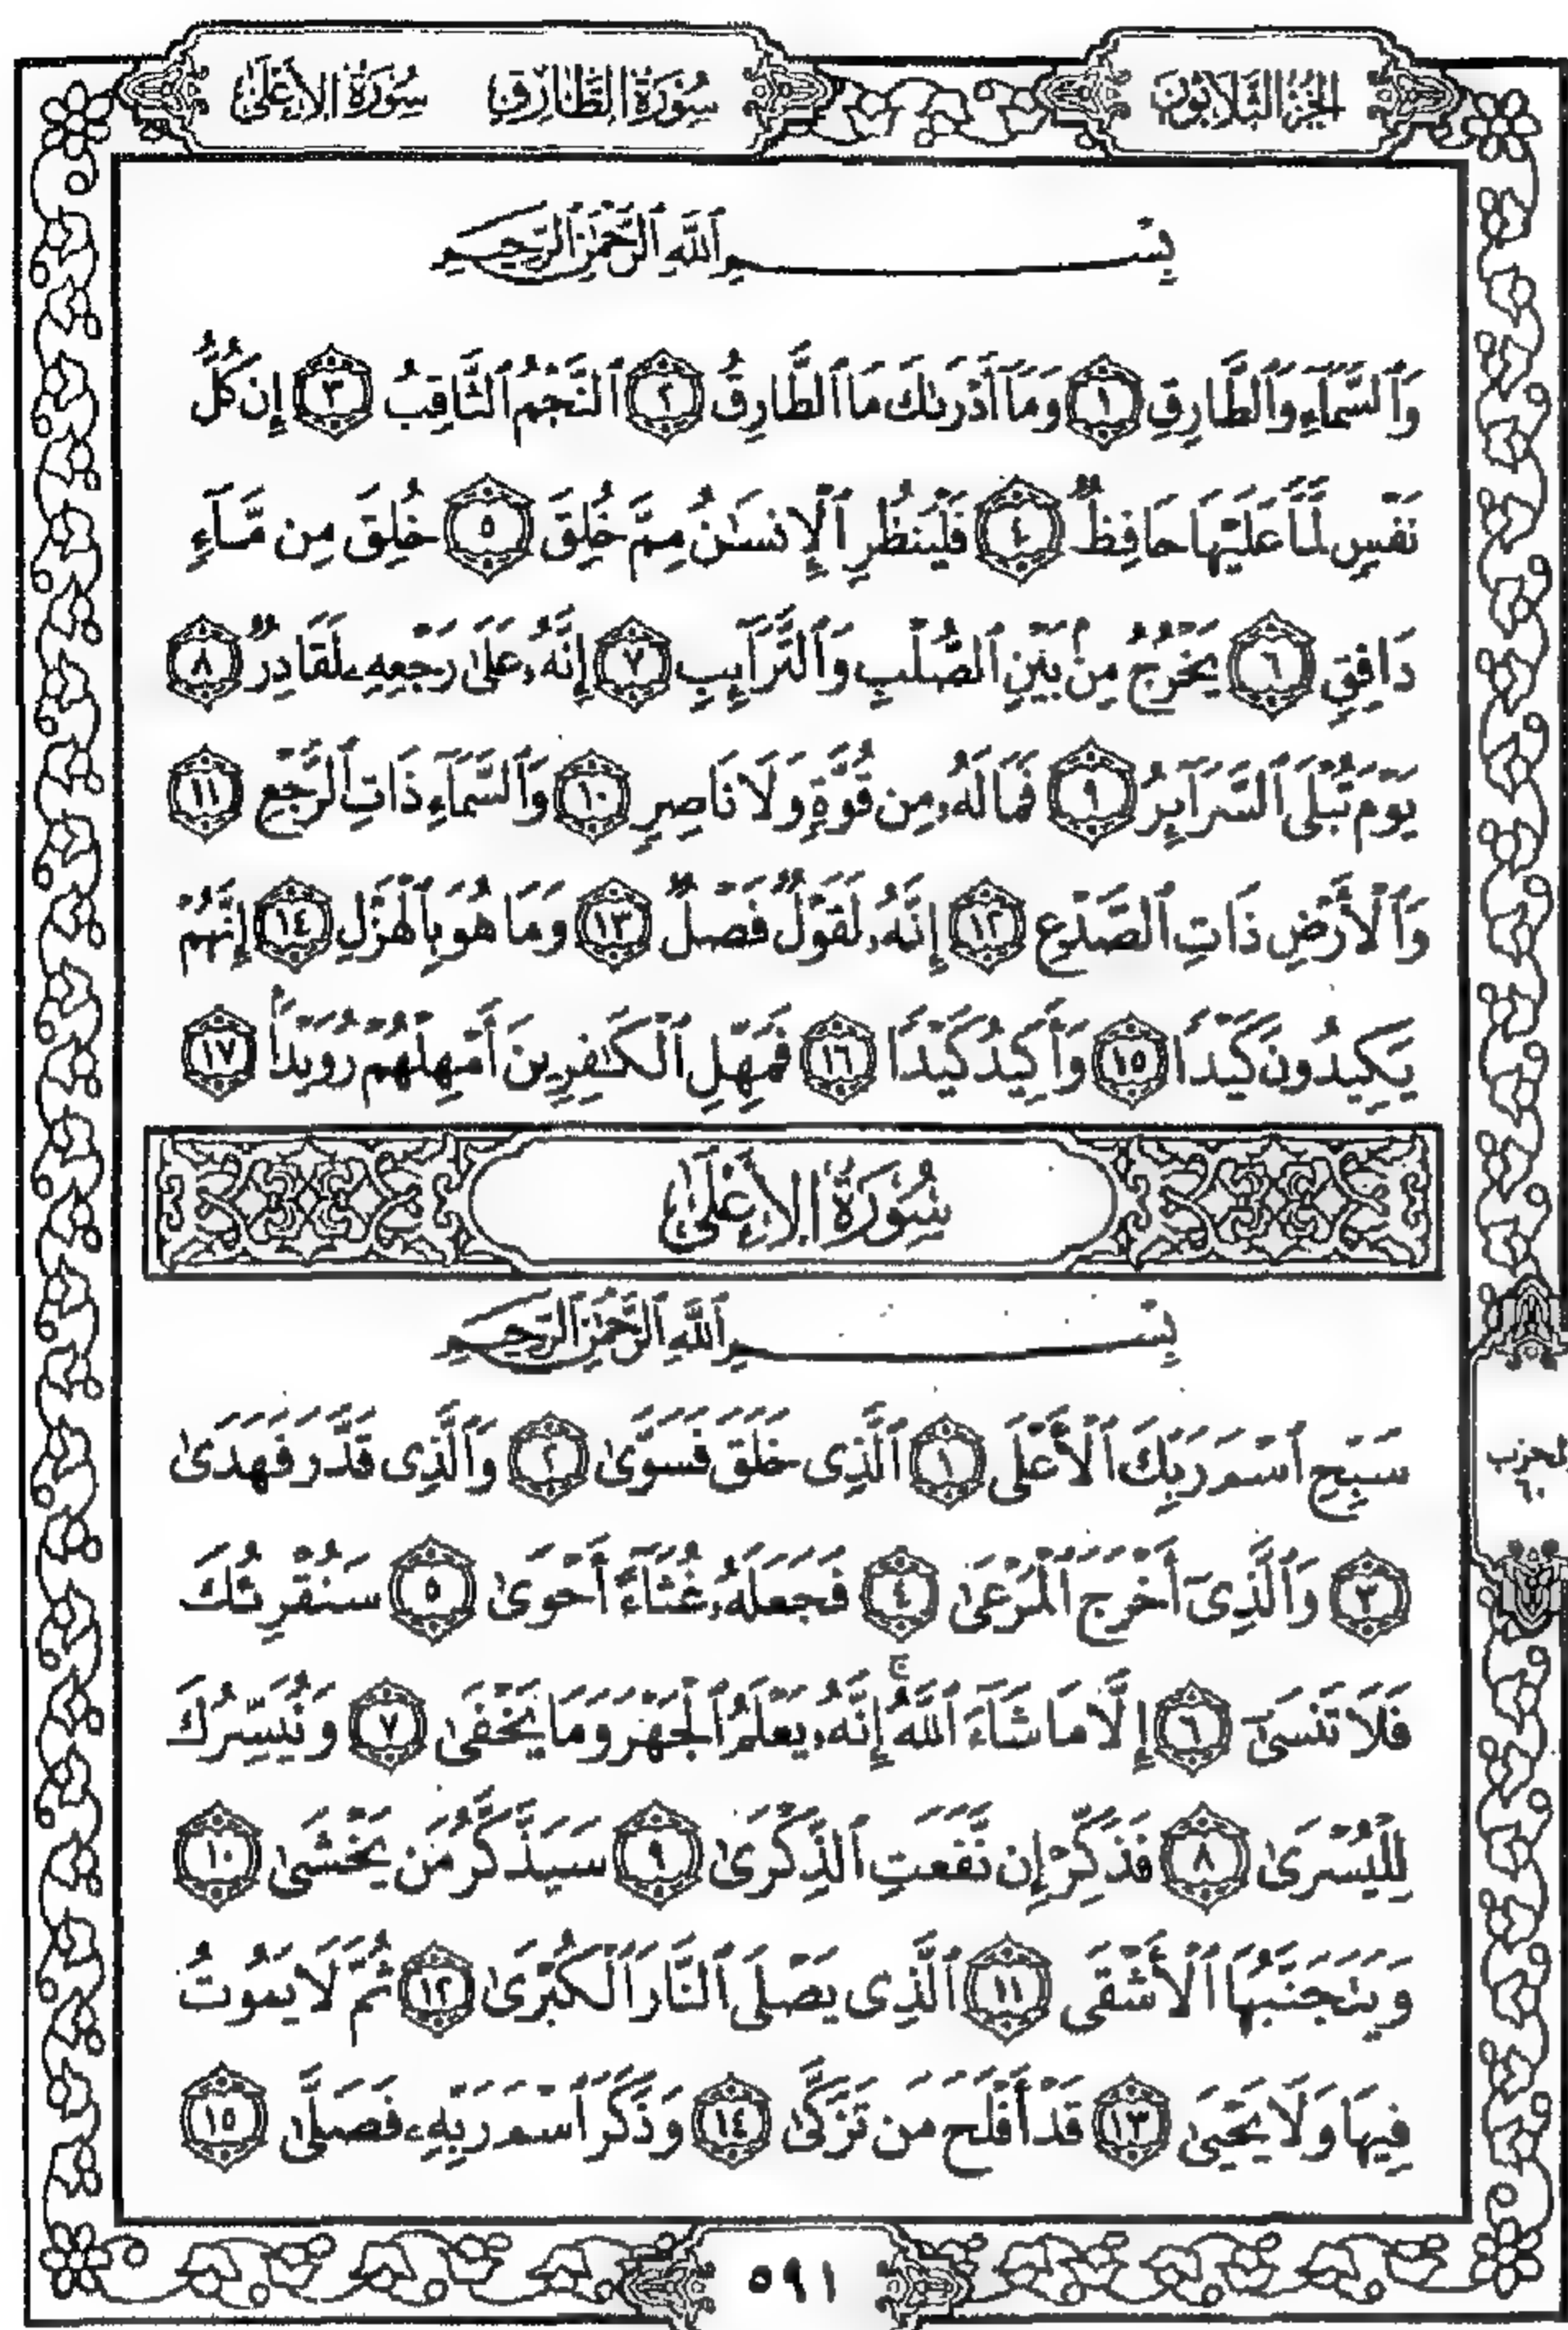 الجزء الثلاثون
سورة الطارق سورة الأعلى
بِسْمِ ٱللَّهِ ٱلرَّحْمَٰنِ ٱلرَّحِيمِ
وَٱلسَّمَآءِ وَٱلطَّارِقِ ١ وَمَآ أَدْرَىٰكَ مَا ٱلطَّارِقُ ٢ ٱلنَّجْمُ ٱلثَّاقِبُ ٣ إِن كُلُّ
نَفْسٍ لَّمَّا عَلَيْهَا حَافِظٌ ٤ فَلْيَنظُرِ ٱلْإِنسَٰنُ مِمَّ خُلِقَ ٥ خُلِقَ مِن مَّآءٍ
دَافِقٍ ٦ يَخْرُجُ مِنۢ بَيْنِ ٱلصُّلْبِ وَٱلتَّرَآئِبِ ٧ إِنَّهُۥ عَلَىٰ رَجْعِهِۦ لَقَادِرٌ ٨
يَوْمَ تُبْلَى ٱلسَّرَآئِرُ ٩ فَمَا لَهُۥ مِن قُوَّةٍ وَلَا نَاصِرٍ ١٠ وَٱلسَّمَآءِ ذَاتِ ٱلرَّجْعِ ١١
وَٱلْأَرْضِ ذَاتِ ٱلصَّدْعِ ١٢ إِنَّهُۥ لَقَوْلٌ فَصْلٌ ١٣ وَمَا هُوَ بِٱلْهَزْلِ ١٤ إِنَّهُمْ
يَكِيدُونَ كَيْدًا ١٥ وَأَكِيدُ كَيْدًا ١٦ فَمَهِّلِ ٱلْكَٰفِرِينَ أَمْهِلْهُمْ رُوَيْدًۢا ١٧
سورة الأعلى
بِسْمِ ٱللَّهِ ٱلرَّحْمَٰنِ ٱلرَّحِيمِ
سَبِّحِ ٱسْمَ رَبِّكَ ٱلْأَعْلَى ١ ٱلَّذِى خَلَقَ فَسَوَّىٰ ٢ وَٱلَّذِى قَدَّرَ فَهَدَىٰ
٣ وَٱلَّذِىٓ أَخْرَجَ ٱلْمَرْعَىٰ ٤ فَجَعَلَهُۥ غُثَآءً أَحْوَىٰ ٥ سَنُقْرِئُكَ
فَلَا تَنسَىٰٓ ٦ إِلَّا مَا شَآءَ ٱللَّهُ ۚ إِنَّهُۥ يَعْلَمُ ٱلْجَهْرَ وَمَا يَخْفَىٰ ٧ وَنُيَسِّرُكَ
لِلْيُسْرَىٰ ٨ فَذَكِّرْ إِن نَّفَعَتِ ٱلذِّكْرَىٰ ٩ سَيَذَّكَّرُ مَن يَخْشَىٰ ١٠
وَيَتَجَنَّبُهَا ٱلْأَشْقَى ١١ ٱلَّذِى يَصْلَى ٱلنَّارَ ٱلْكُبْرَىٰ ١٢ ثُمَّ لَا يَمُوتُ
فِيهَا وَلَا يَحْيَىٰ ١٣ قَدْ أَفْلَحَ مَن تَزَكَّىٰ ١٤ وَذَكَرَ ٱسْمَ رَبِّهِۦ فَصَلَّىٰ ١٥
الحزب
٦٠
٥٩١